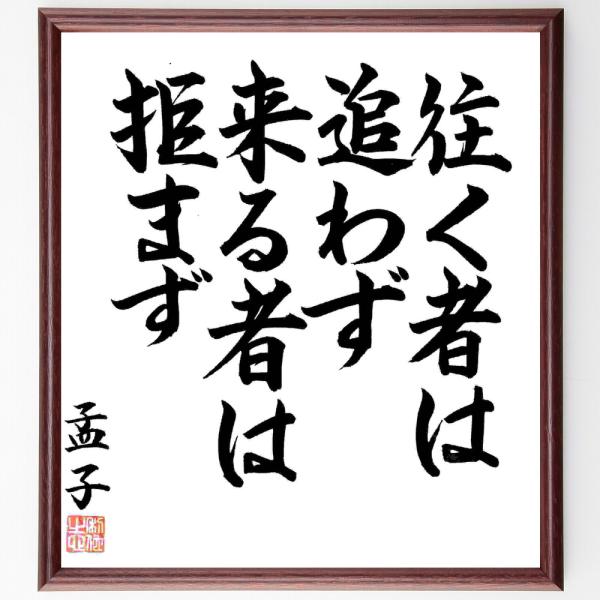 往く者は
追わず
来る者は
拒まず
孟子